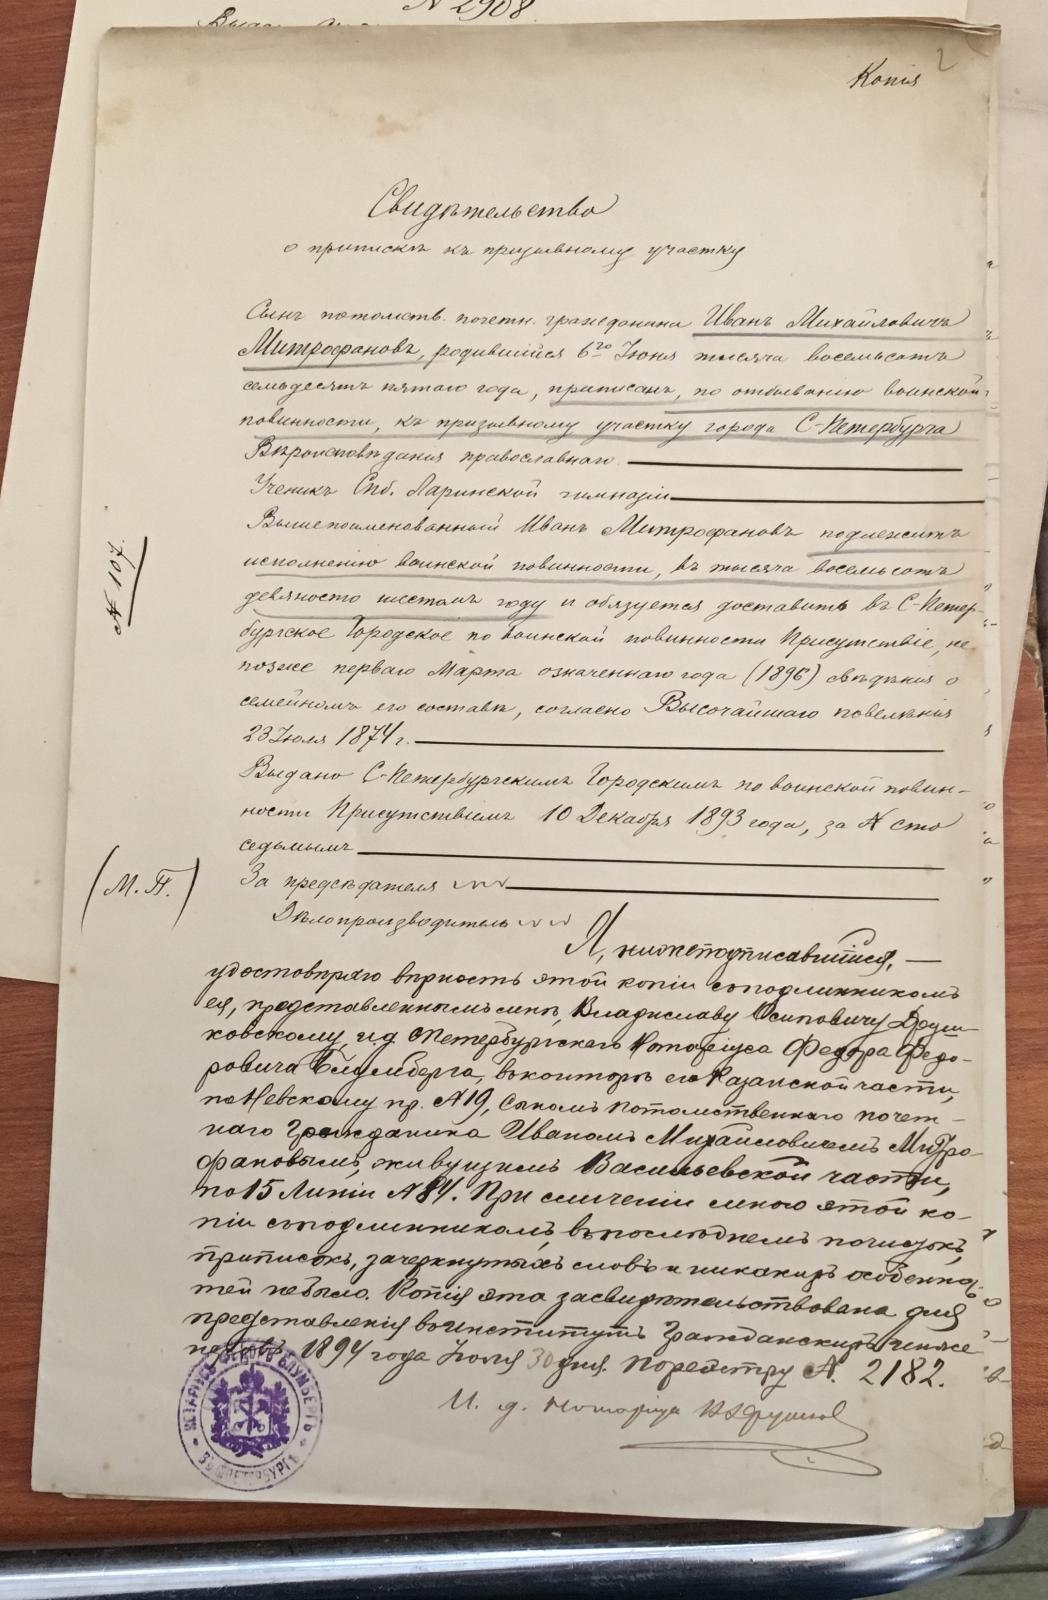 № 2908
Копія
2
Свидѣтельство
о припискѣ къ призывному участку
Сынъ потомств. почетн. гражданина Иванъ Михайловичъ
Митрофановъ, родившійся 6го Іюня тысяча восемьсотъ
семьдесятъ пятаго года, приписанъ, по отбыванію воинской
повинности, къ призывному участку города С-Петербурга
Вѣроисповѣданія православнаго
Ученикъ Спб. Ларинской гимназіи
Вышепоименованный Иванъ Митрофановъ подлежитъ
исполненію воинской повинности, въ тысяча восемьсотъ
девяносто шестомъ году и обязуется доставить въ С-Петер-
бургское Городское по воинской повинности Присутствіе, не
позже перваго Марта означеннаго года (1896) свѣдѣнія о
семейномъ его составѣ, согласно Высочайшаго повелѣнія
23 Іюля 1874 г.
Выдано С-Петербургскимъ Городскимъ по воинской повин-
ности Присутствіемъ 10 Декабря 1893 года, за № сто
седьмымъ
№ 107.
(М. П.)
За предсѣдателя
Дѣлопроизводитель
Я, нижеподписавшійся,
удостовѣряю вѣрность этой копіи съ подлинникомъ
ея, представленнымъ мнѣ, Владиславу Осиповичу Друш-
ковскому, и.д. СПетербургскаго Нотаріуса Федора Федо-
ровича Блумберга, въ конторѣ его Казанской части,
по Невскому пр. №19, Сыномъ Потомственнаго почет-
наго Гражданина Иваномъ Михайловичемъ Митро-
фановымъ, живущимъ Васильевской части,
по 15 Линіи №84. При сличеніи мною этой ко-
піи съ подлинникомъ, въ послѣднемъ почистокъ,
приписокъ, зачеркнутыхъ словъ и никакихъ особенно-
тей небыло. Копія эта засвидѣтельствована для
представленія въ институтъ Гражданскихъ инже-
неровъ 1894 года Іюля 30 дня. По реестру №. 2182.
И. д. Нотаріуса
НОТАРІУСЪ ФЕДОРЪ БЛУМБЕРГЪ
ВЪ С.ПЕТЕРБУРГѢ